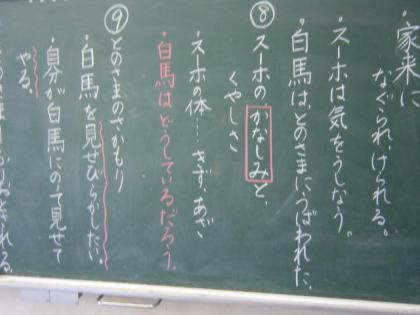 ・家来に
なぐられ、けられる。
・スーホは気をうしなう。
・白馬は、とのさまにうばわれた。
⑧スーホのかなしみと、
くやしさ
・スーホの体…きず、あざ
・白馬はどうしてるだろう。
⑨とのさまのさかもり
・白馬を見せびらかしたい。
・自分が白馬にのって見せて
やる。